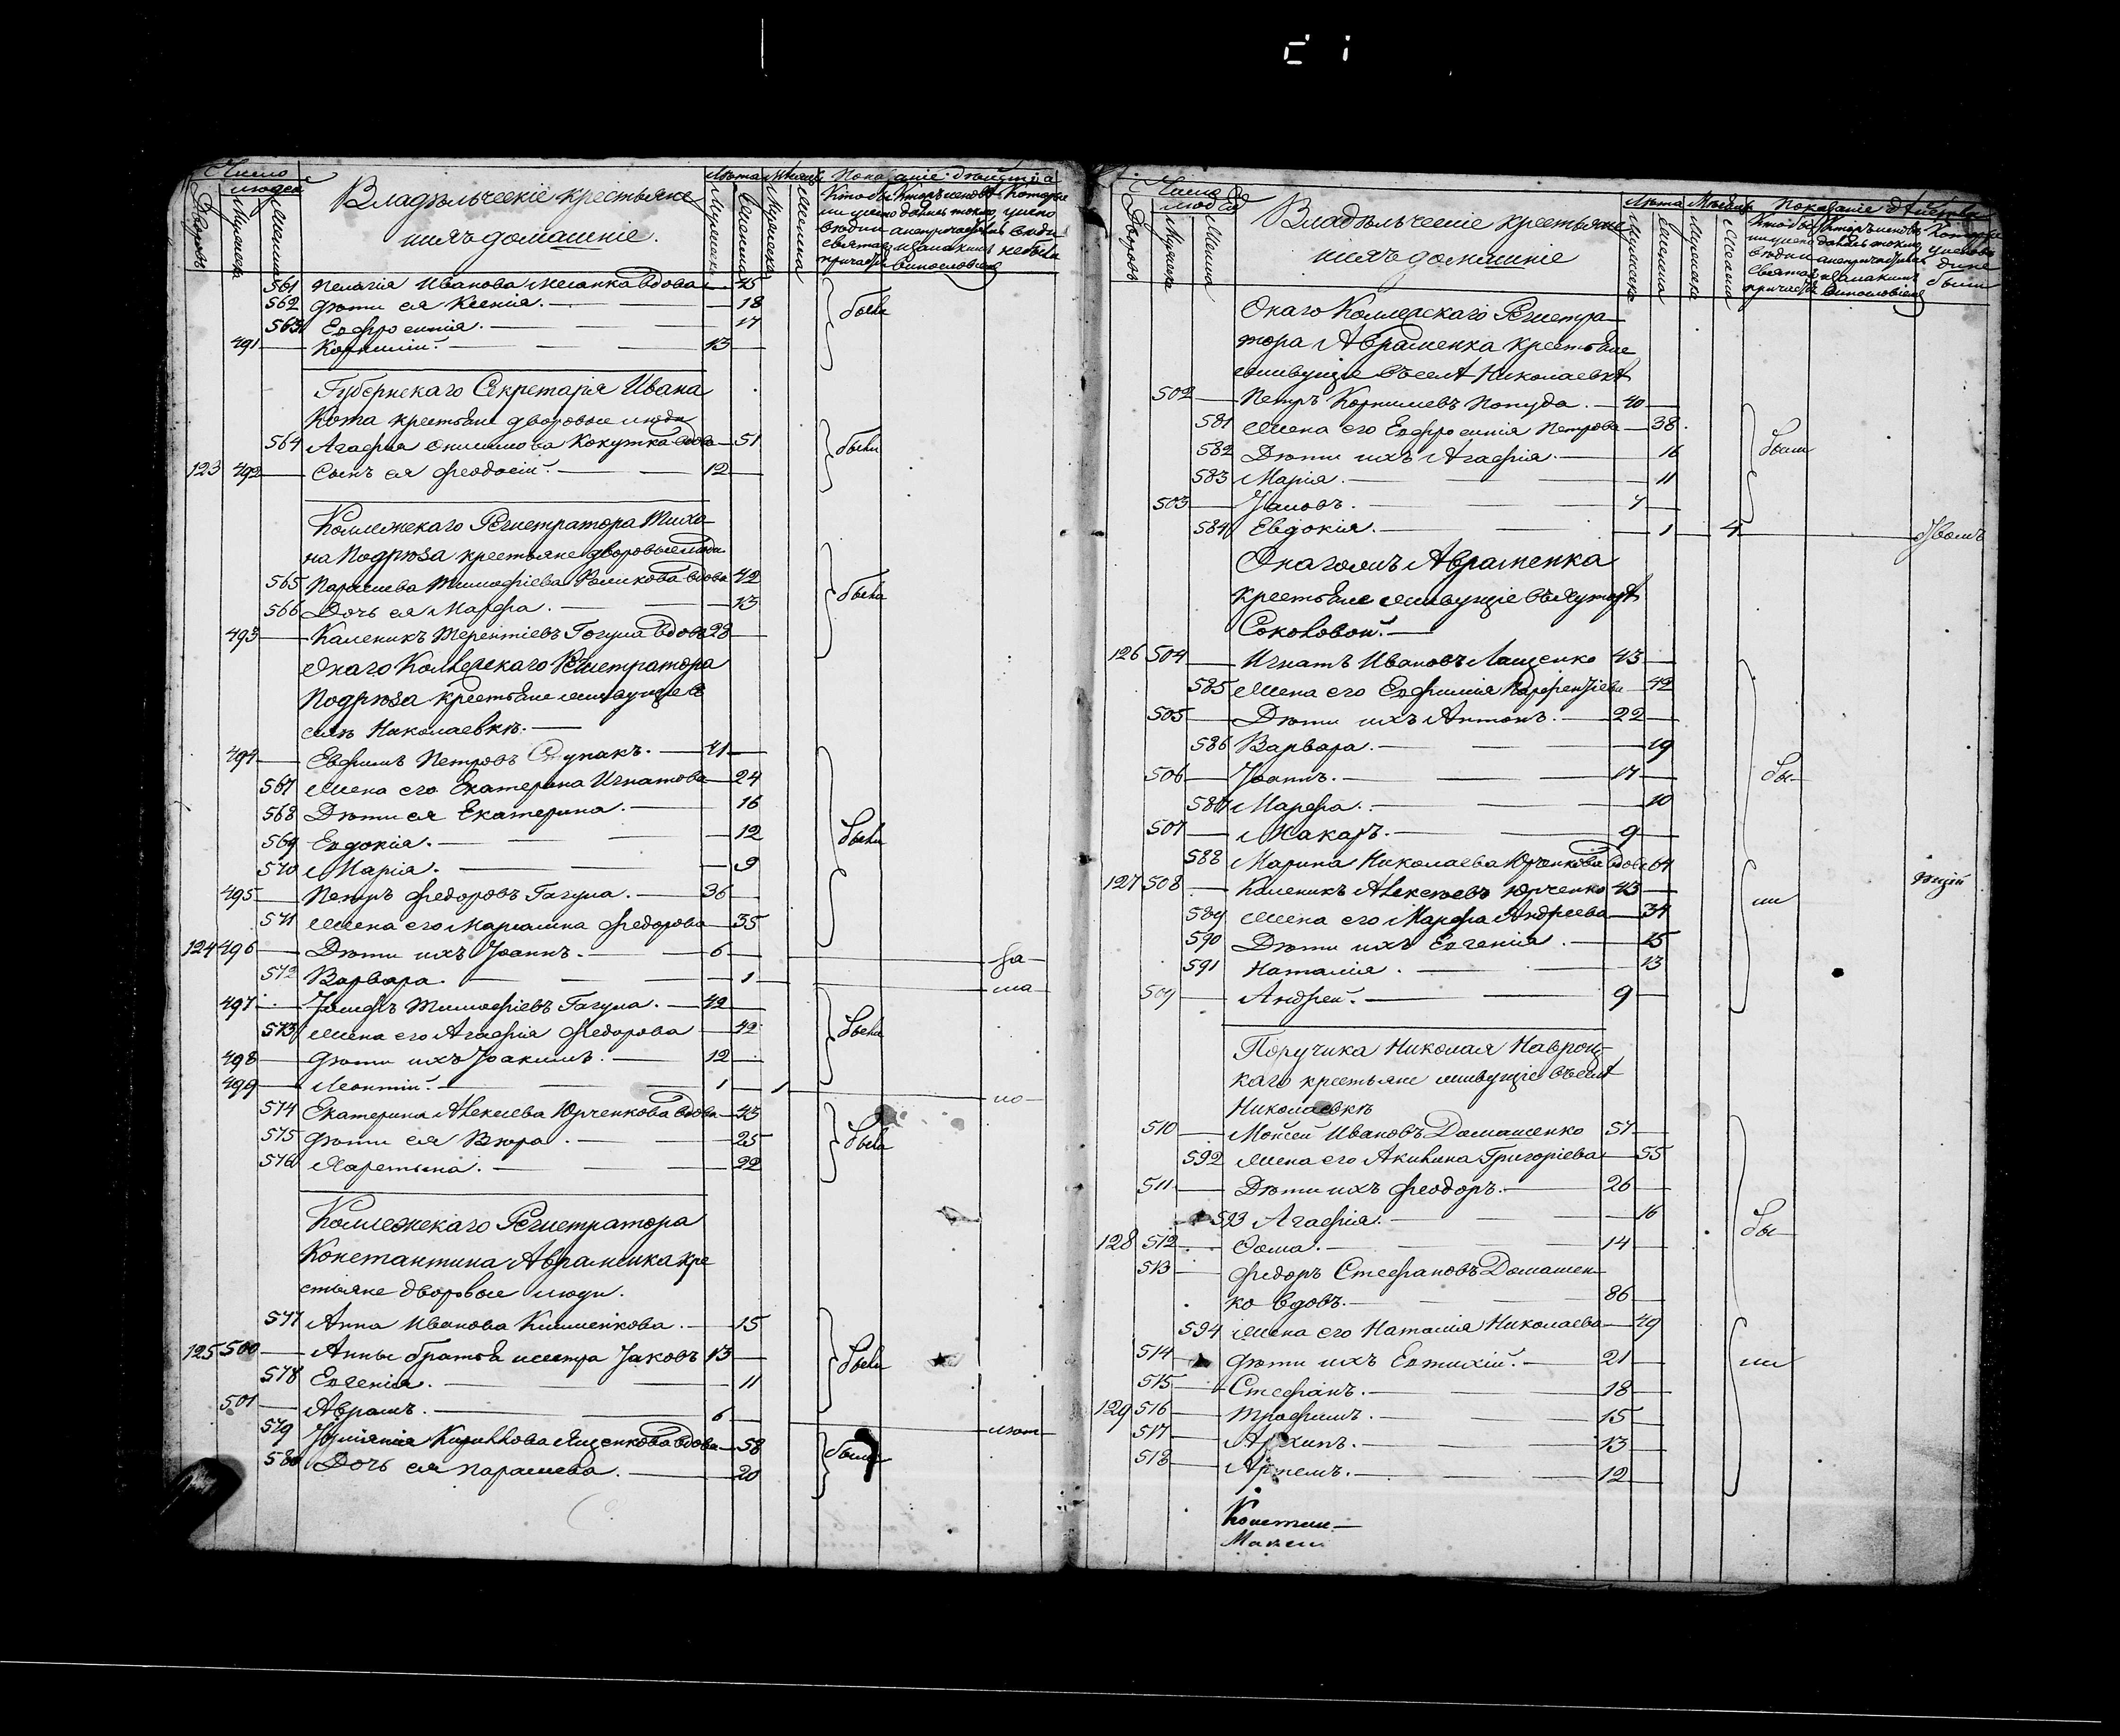 Число
людей
Дворовъ
Мужеска
Женска
Владѣльческіе крестьяне
и ихъ домашніе.
Лѣта
Мужеска
Женска
Мужеска
Женска
561 Пелагія Иванова вдова 45
562 Дѣти ея Ксенія. 18
563 Евфросинія. 17
491 Корнилій. 13
были
Губернскаго Секретаря Ивана
Кота крестьяне дворовые люди
564 Агафія Кокутка вдова 51
123 492 Сынъ ея Феодосій. 12
были
Коллежскаго Регистратора Миха-
ла Подрѣза крестьяне дворовые люди
565 Параскева Тимофіева вдова 42
566 Дочь ея Марфа. 13
493 Каленикъ Терентіевъ Гогуля вдовъ 28
были
Онаго Коллежскаго Регистратора
Подрѣза крестьяне живущіе въ
селѣ Николаевкѣ.
494 Евфимъ Петровъ 41
567 Жена его Екатерина Игнатова 24
568 Дѣти ея Екатерина. 16
569 Евдокія. 12
570 Марія. 9
были
495 Петръ Федоровъ Гагуля. 36
571 Жена его Маріамна Федорова 35
124 496 Дѣти ихъ Іоаннъ. 6
за
572 Варвара 1
ма
497 Іосифъ Тимофіевъ Гагуля. 42
573 Жена его Агафія Федорова 42
498 Дѣти ихъ Іоакимъ. 12
были
499 Леонтій. 1 1
ло
574 Екатерина Алексіева Юрченкова вдова 43
575 Дѣти ея Вѣра. 25
576 Харетына. 22
были
Коллежскаго Регистратора
Константина Авраменка кре
стьяне дворовые люди.
577 Анна Иванова Клименкова. 15
125 500 Анны братья и сестра Іаковъ 13
578 Евгенія. 11
были
501 Аврамъ. 6
лѣт
579 Кириллова Яценкова вдова 58
580 Дочь ея Параскева. 20
были
Число
людей
Дворовъ
Мужеска
Женска
Владѣльческіе крестьяне
и ихъ домашніе
Лѣта
Мужеска
Женска
Мужеска
Женска
Показаніе дѣйства
Онаго Коллежскаго Регистра-
тора Авраменка крестьяне
живущіе въ селѣ Николаевкѣ
502 Петръ Корниліевъ Попуда. 40
581 Жена его Евфросинія Петрова 38
582 Дѣти ихъ Агафія. 16
583 Марія. 11
были
503 Іаковъ. 7
584 Евдокія. 1 4
Онаго жъ Авраменка
крестьяне живущіе въ хуторѣ
Соколовой.
126 504 Игнатъ Ивановъ Лащенко 43
585 Жена его Евфимія Парфентіева 42
505 Дѣти ихъ Антонъ. 22
586 Варвара. 19
506 Іоаннъ. 17
бы-
587 Марфа. 10
507 Макаръ. 9
588 Марина Николаева Юрченкова вдова 64
127 508 Каленикъ Алексѣевъ Юрченко 43
ли
589 Жена его Марфа Андреева 34
590 Дѣти ихъ Евгенія. 15
591 Наталія. 13
509 Андрей. 9
Поручика Николая Навроц-
каго крестьяне живущіе въ селѣ
Николаевкѣ
510 Моисей Ивановъ Домашенко 57
592 Жена его Акилина Григоріева 55
511 Дѣти ихъ Феодоръ. 26
593 Агафія. 16
бы-
128 512 Фома. 14
513 Федоръ Стефановъ Домашен-
ко вдовъ. 86
594 Жена его Наталія Николаева 49
514 Дѣти ихъ Евтихій. 21
ли
515 Стефанъ. 18
129 516 Трофимъ. 15
517 Архипъ. 13
518 Артемъ. 12